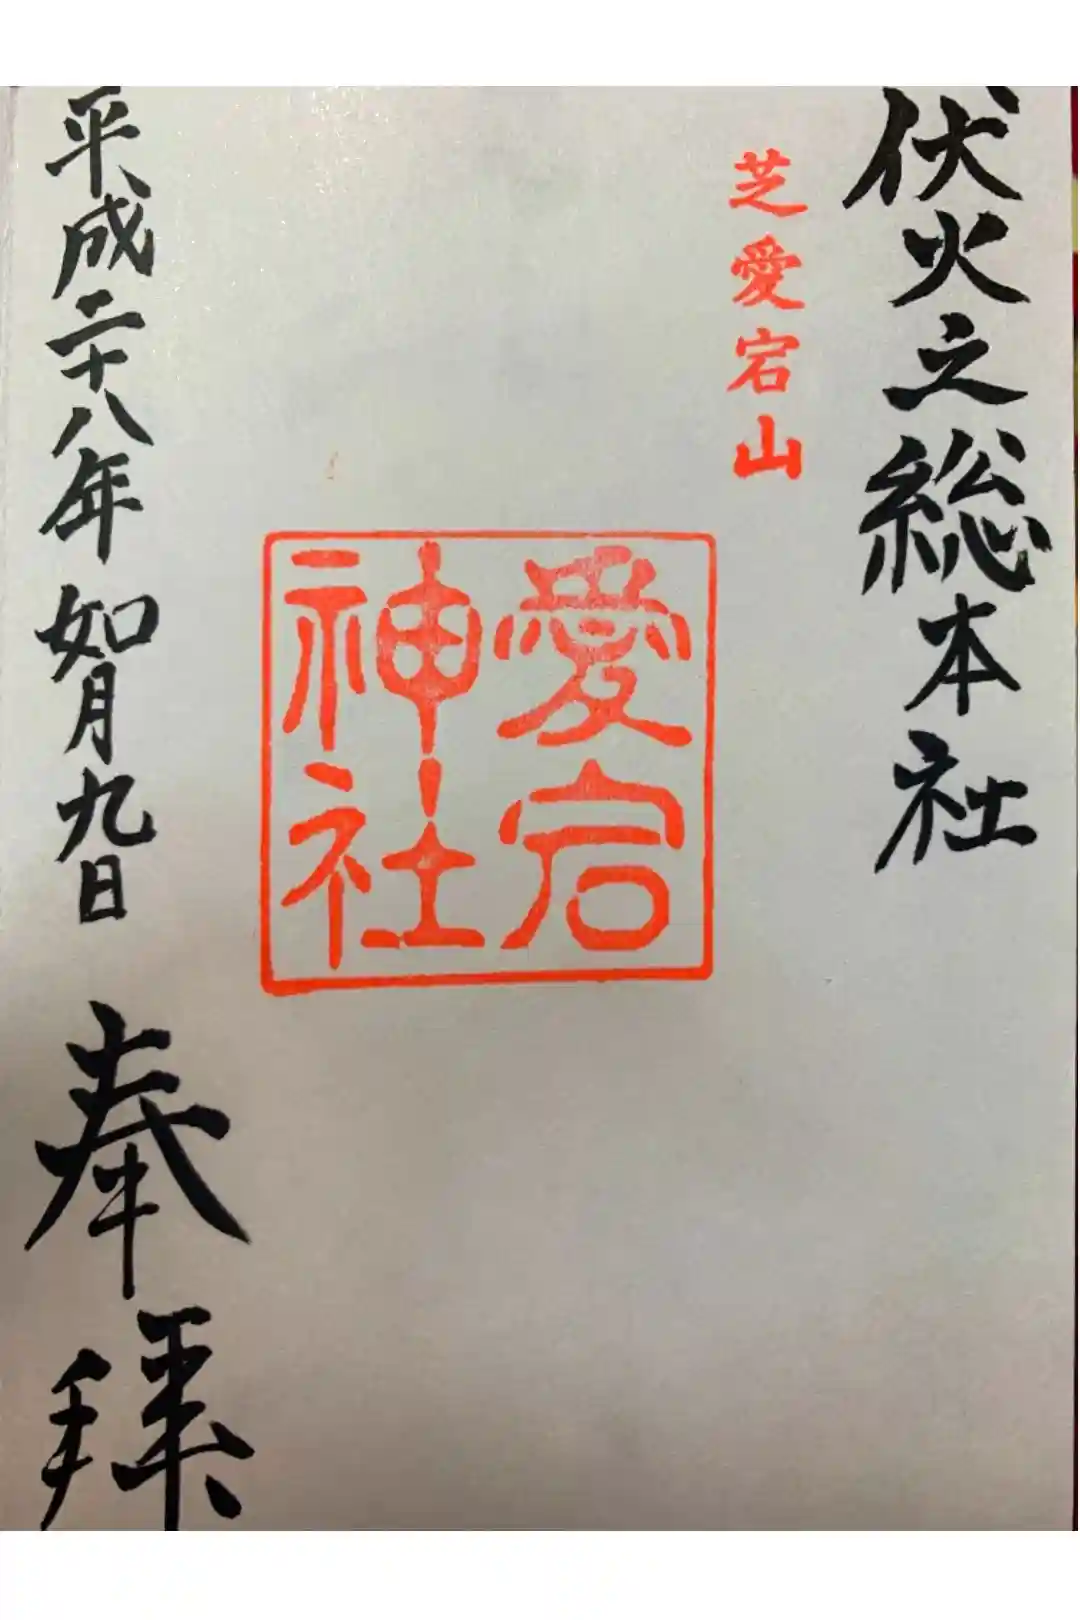 伏火之総本社
芝愛宕山
愛宕
神社
平成二十八年如月九日
奉拝